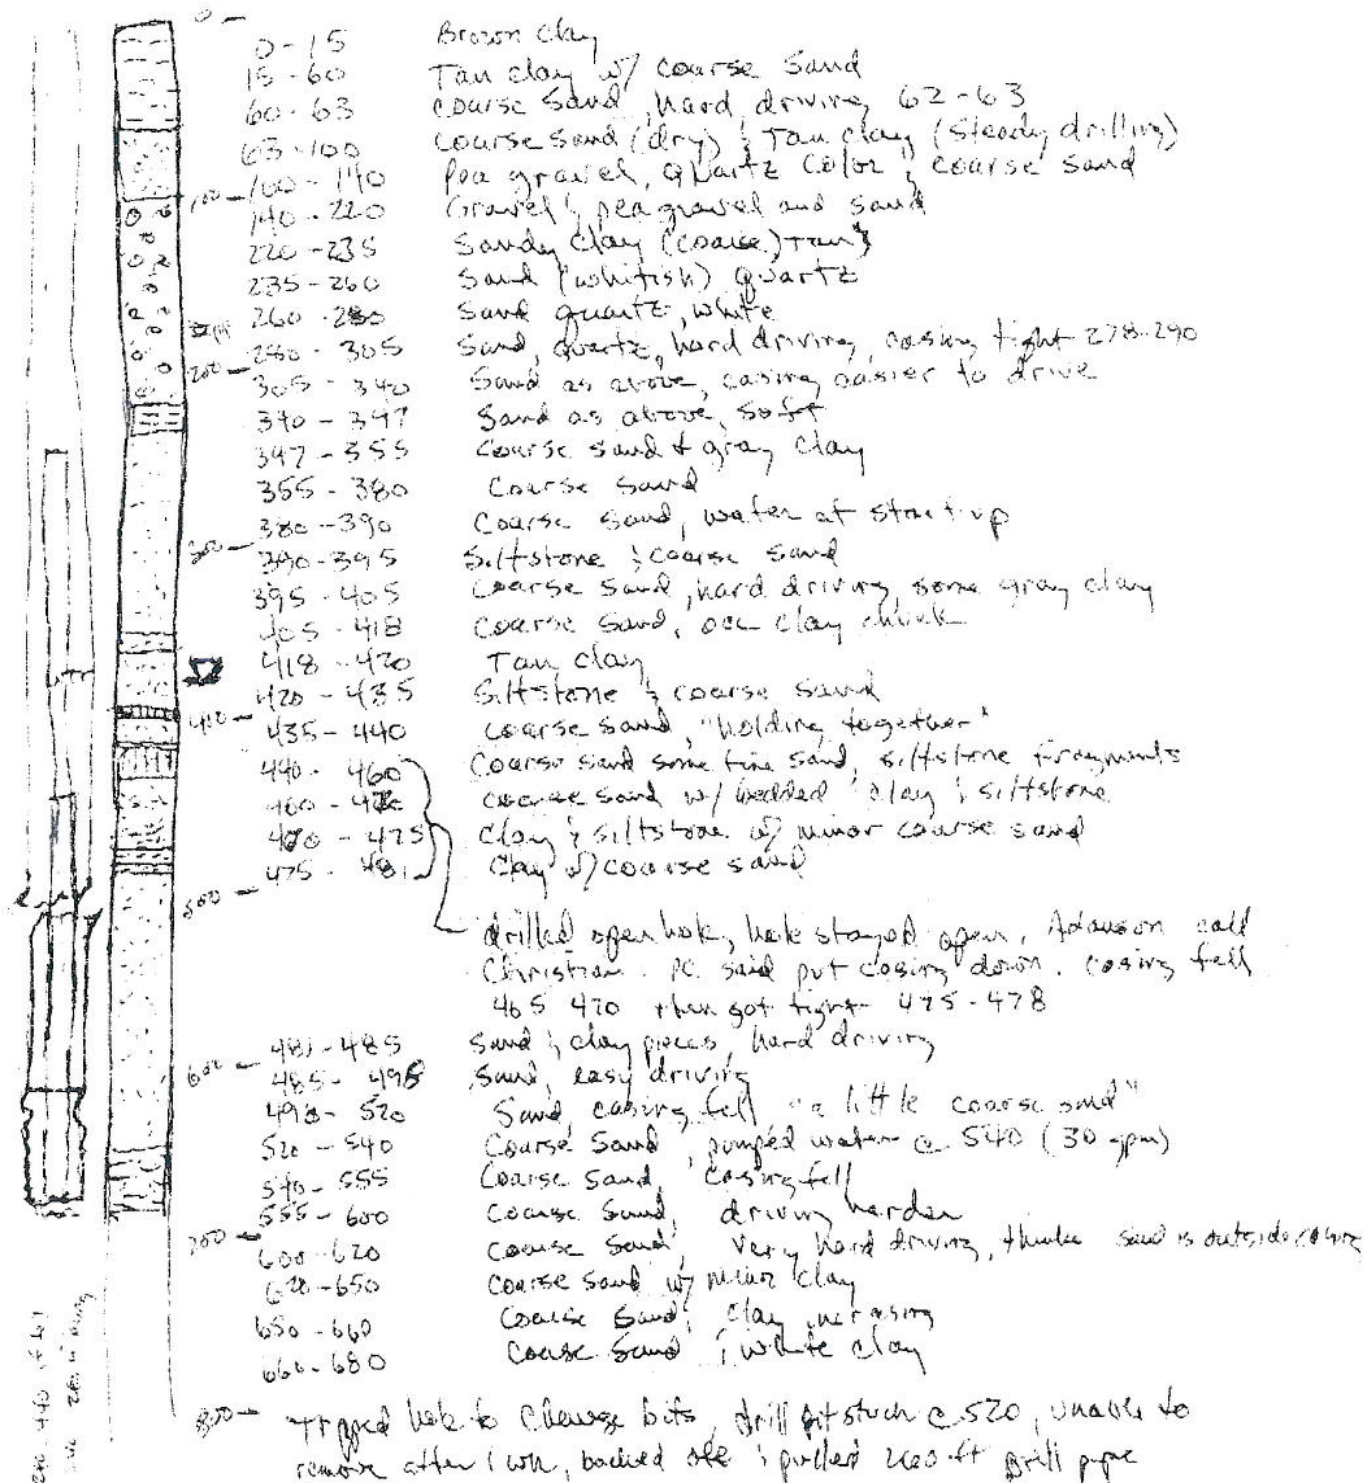 0 -
0-15 Brown clay
15-60 Tan clay w/ coarse sand
60-63 coarse sand, hard driving 62-63
63-100 coarse sand (dry) & Tan clay (steady drilling)
100 - 100-140 Pea gravel, quartz color & coarse sand
140-220 Gravel & pea gravel and sand
220-235 Sandy clay (coarse) Tan
235-260 Sand (whitish) quartz
260-280 Sand quartz, white
280-305 Sand, quartz, hard driving, casing tight 278-290
200 -
305-340 Sand as above, casing easier to drive
340-347 Sand as above, soft
347-355 Coarse sand + gray clay
355-380 Coarse sand
380-390 Coarse sand, water at start up
300 - 390-395 Siltstone & coarse sand
395-405 Coarse sand, hard driving, some gray clay
405-418 Coarse sand, occ clay chunk
418-420 Tan clay
420-435 Siltstone & coarse sand
400 - 435-440 coarse sand, "holding together"
440-460 Coarse sand some fine sand, siltstone fragments
460-470 coarse sand w/ bedded clay & siltstone
470-475 Clay & siltstone w/ minor coarse sand
475-481 Clay w/ coarse sand
500 -
drilled open hole, hole stayed open, Adamson call
Christian. PC said put casing down. casing fell
465 470 then got tight 475-478
481-485 Sand & clay pieces, hard driving
600 - 485-498 Sand, easy driving
498-520 Sand, casing fell "a little coarse sand"
520-540 Coarse sand, pumped water @ 540 (30 gpm)
540-555 Coarse sand, casing fell
555-600 Coarse sand, driving harder
700 - 600-620 Coarse sand, very hard driving, thinks sand is outside casing
620-650 Coarse sand w/ minor clay
650-660 Coarse sand, clay increasing
660-680 Coarse sand & white clay
800 - Tripped hole to change bits, drill bit stuck @ 520, unable to
remove after 1 wk, backed off & pulled ft drill pipe